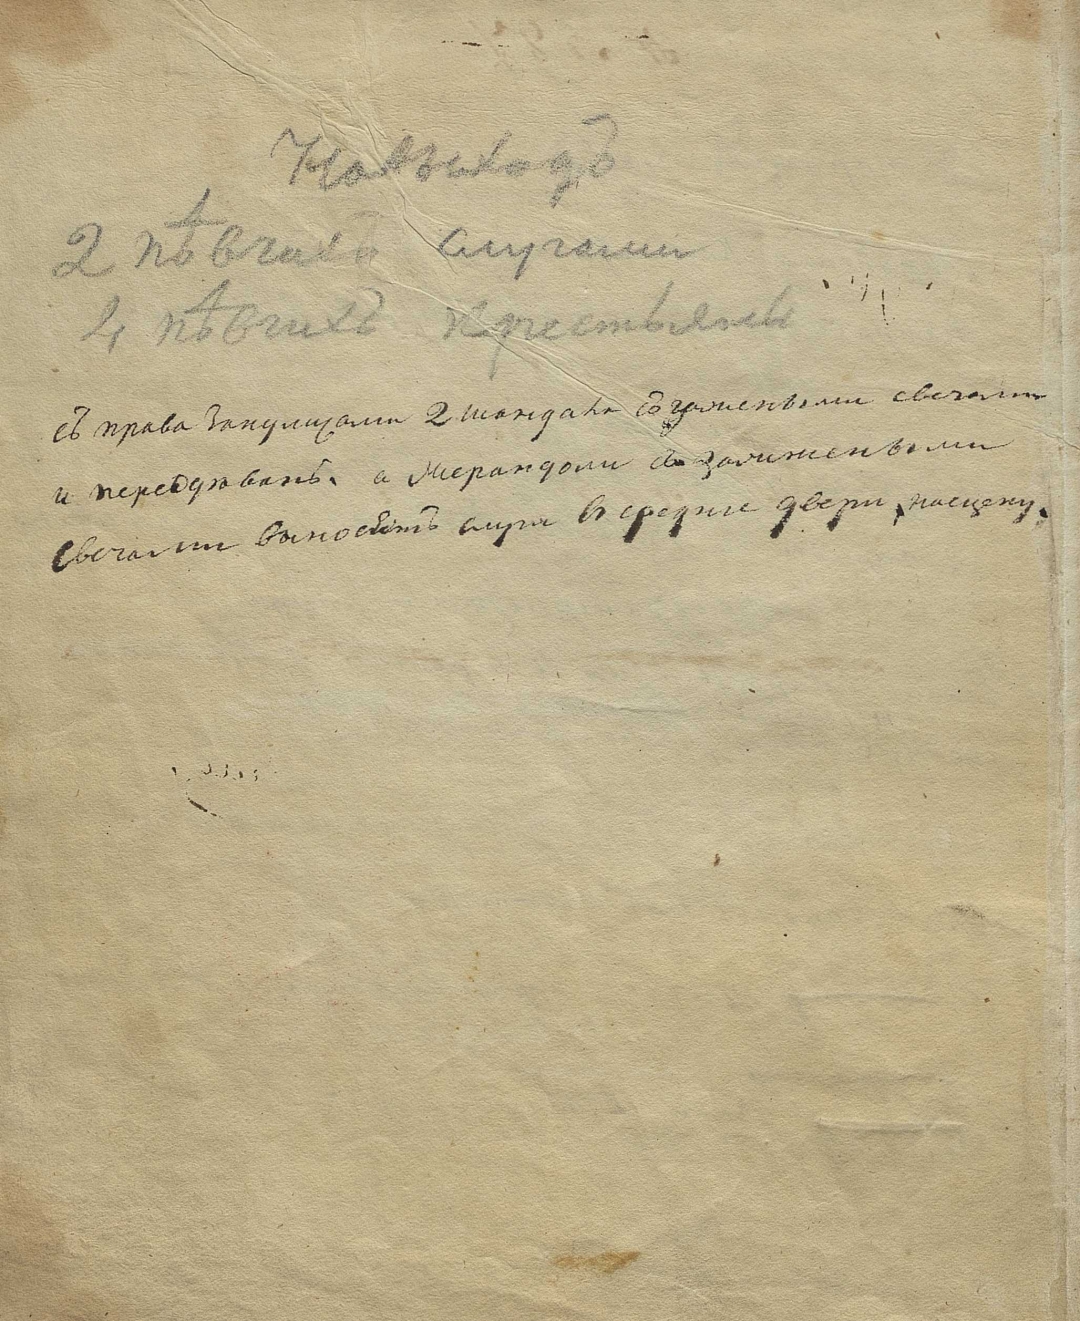 На выходъ
2 пѣвчихъ слугами
4 пѣвчихъ крестьяны
съ права закулисами 2 шандала съ зажеными свечами
и а жерандоли съ зажжеными
свечами выносетъ слуга в средние двери насцену.